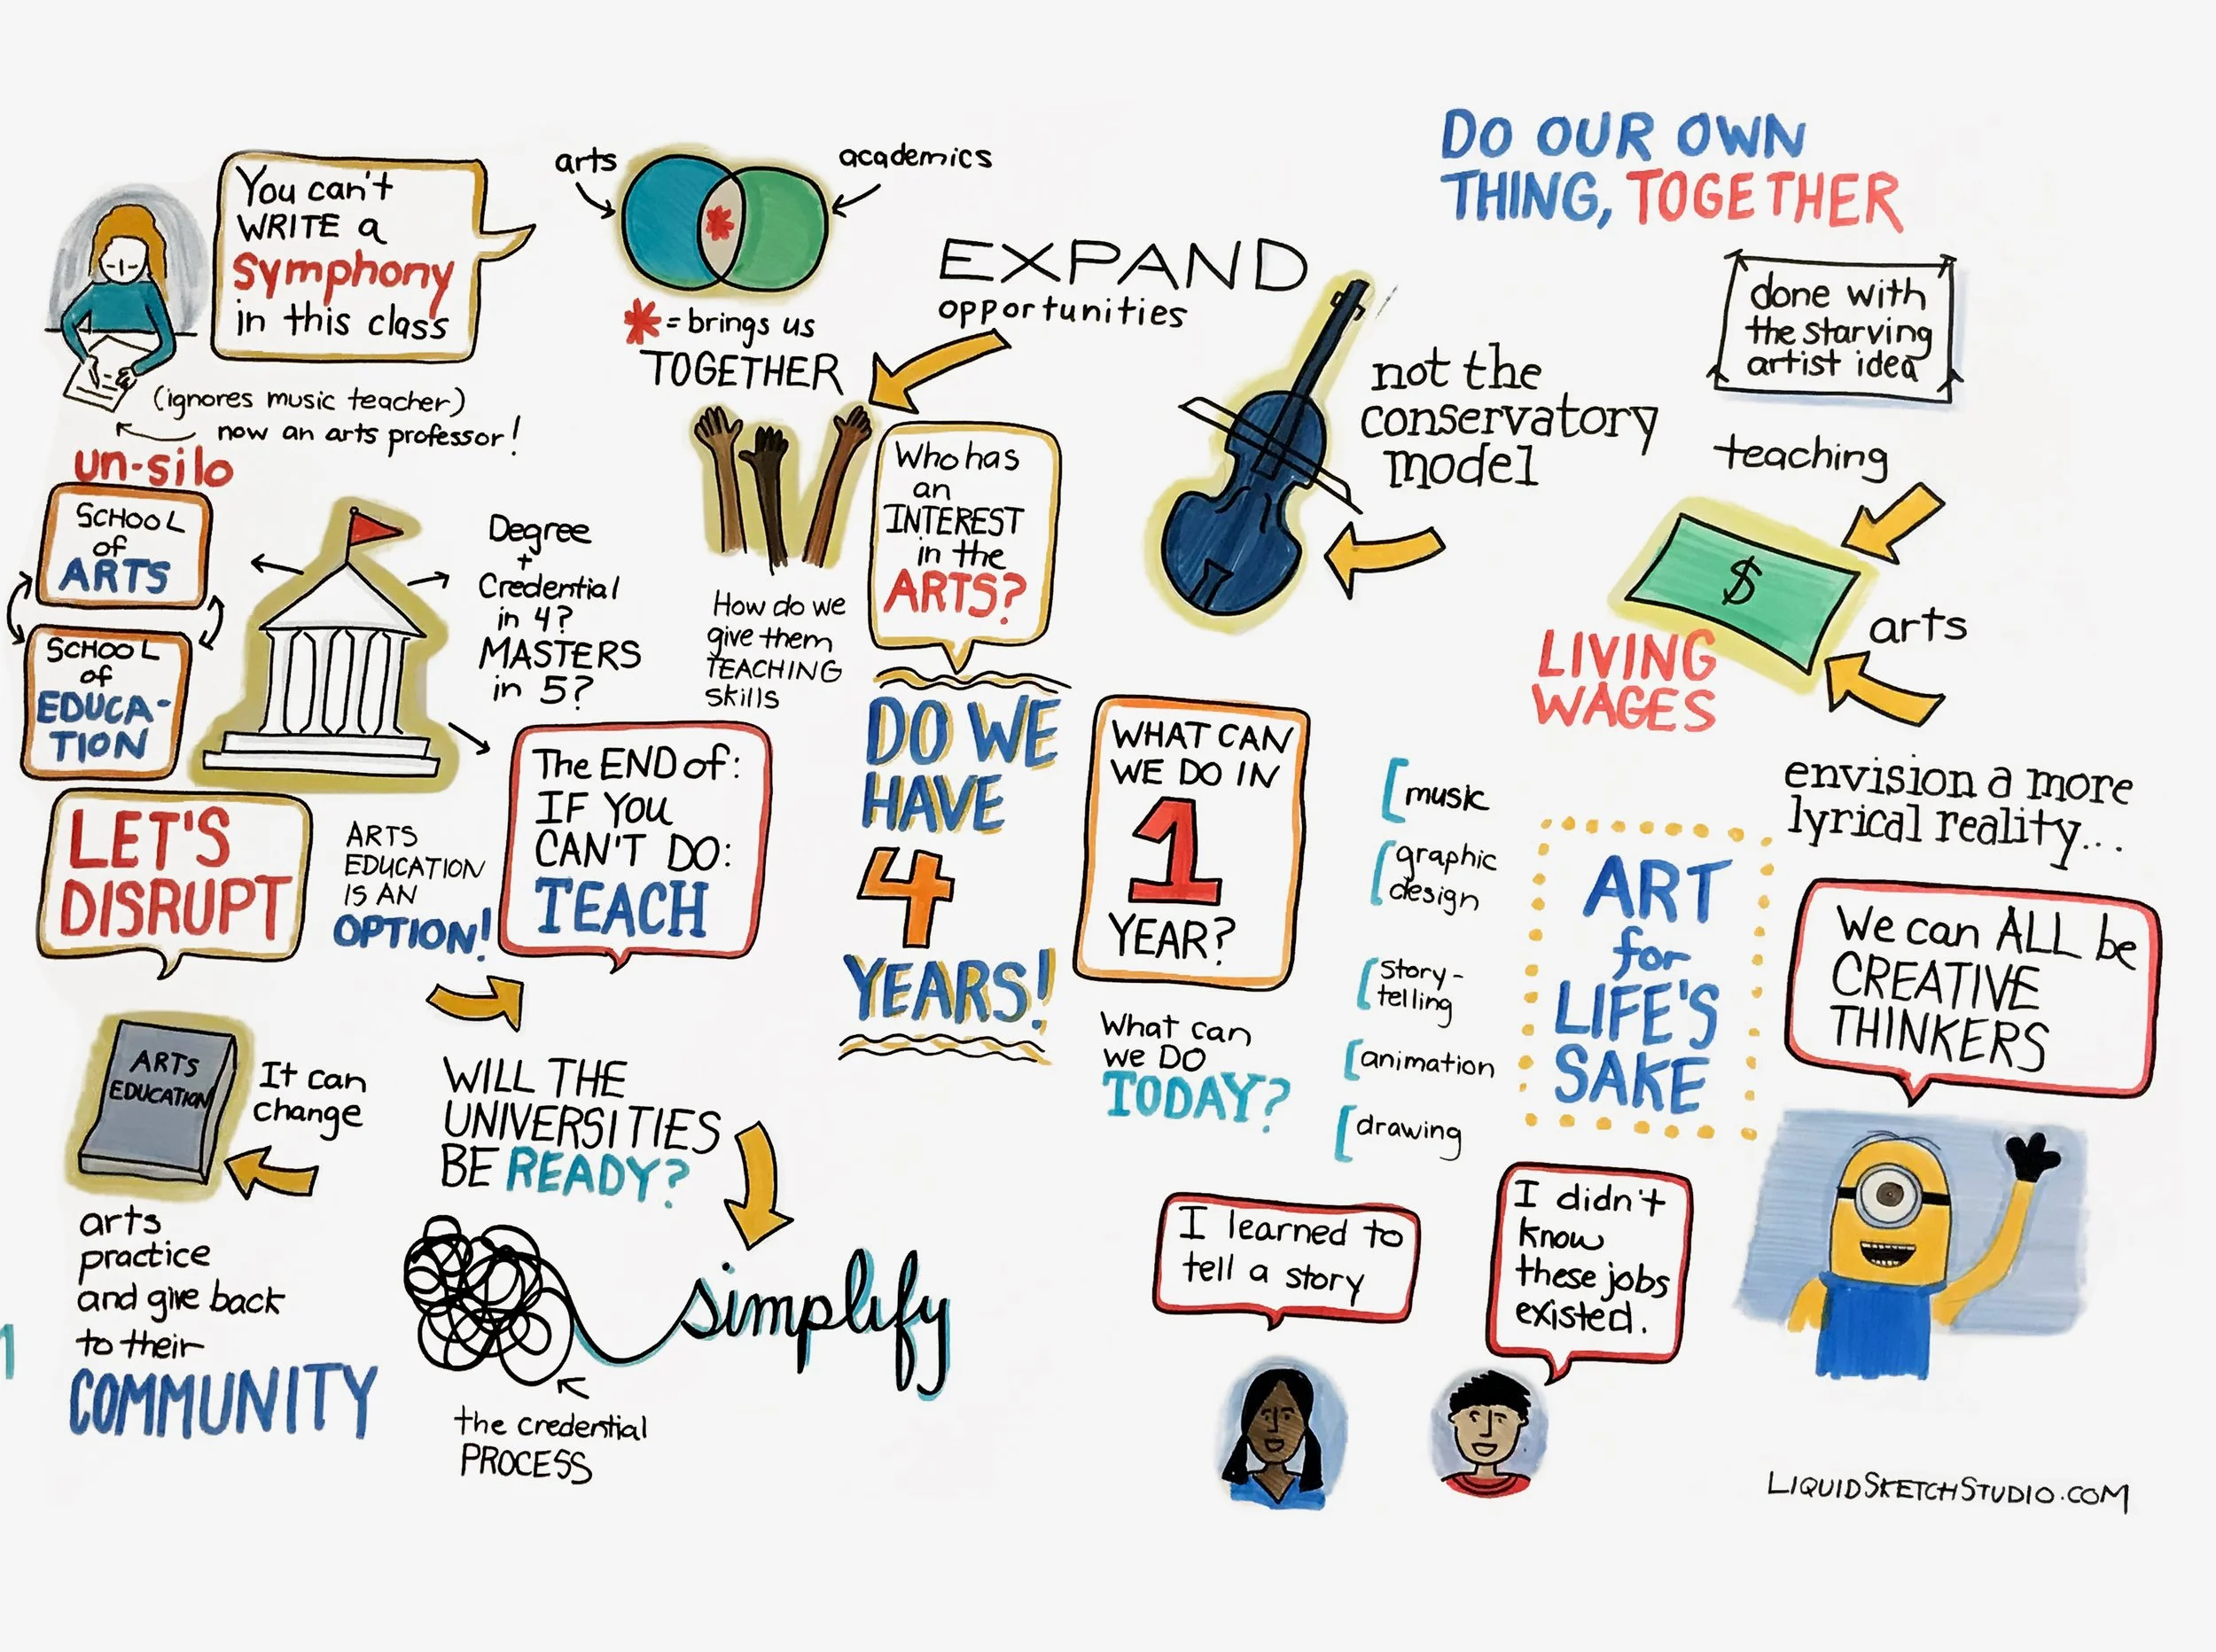 You can't
WRITE a
symphony
in this class
(ignores music teacher)
now an arts professor!
arts
academics
* = brings us
TOGETHER
EXPAND
opportunities
un-silo
SCHOOL
of
ARTS
SCHOOL
of
EDUCA-
TION
Degree
+
Credential
in 4?
MASTERS
in 5?
Who has
an
INTEREST
in the
ARTS?
How do we
give them
TEACHING
skills
LET'S
DISRUPT
ARTS
EDUCATION
IS AN
OPTION!
The END of:
IF YOU
CAN'T DO:
TEACH
DO WE
HAVE
4
YEARS!
ARTS
EDUCATION
It can
change
arts
practice
and give back
to their
COMMUNITY
WILL THE
UNIVERSITIES
BE READY?
simplify
the credential
PROCESS
DO OUR OWN
THING, TOGETHER
done with
the starving
artist idea
not the
conservatory
model
teaching
$
arts
LIVING
WAGES
WHAT CAN
WE DO IN
1
YEAR?
What can
we DO
TODAY?
music
graphic
design
story-
telling
animation
drawing
ART
for
LIFE'S
SAKE
envision a more
lyrical reality...
We can ALL be
CREATIVE
THINKERS
I learned to
tell a story
I didn't
know
these jobs
existed.
LIQUIDSKETCHSTUDIO.COM